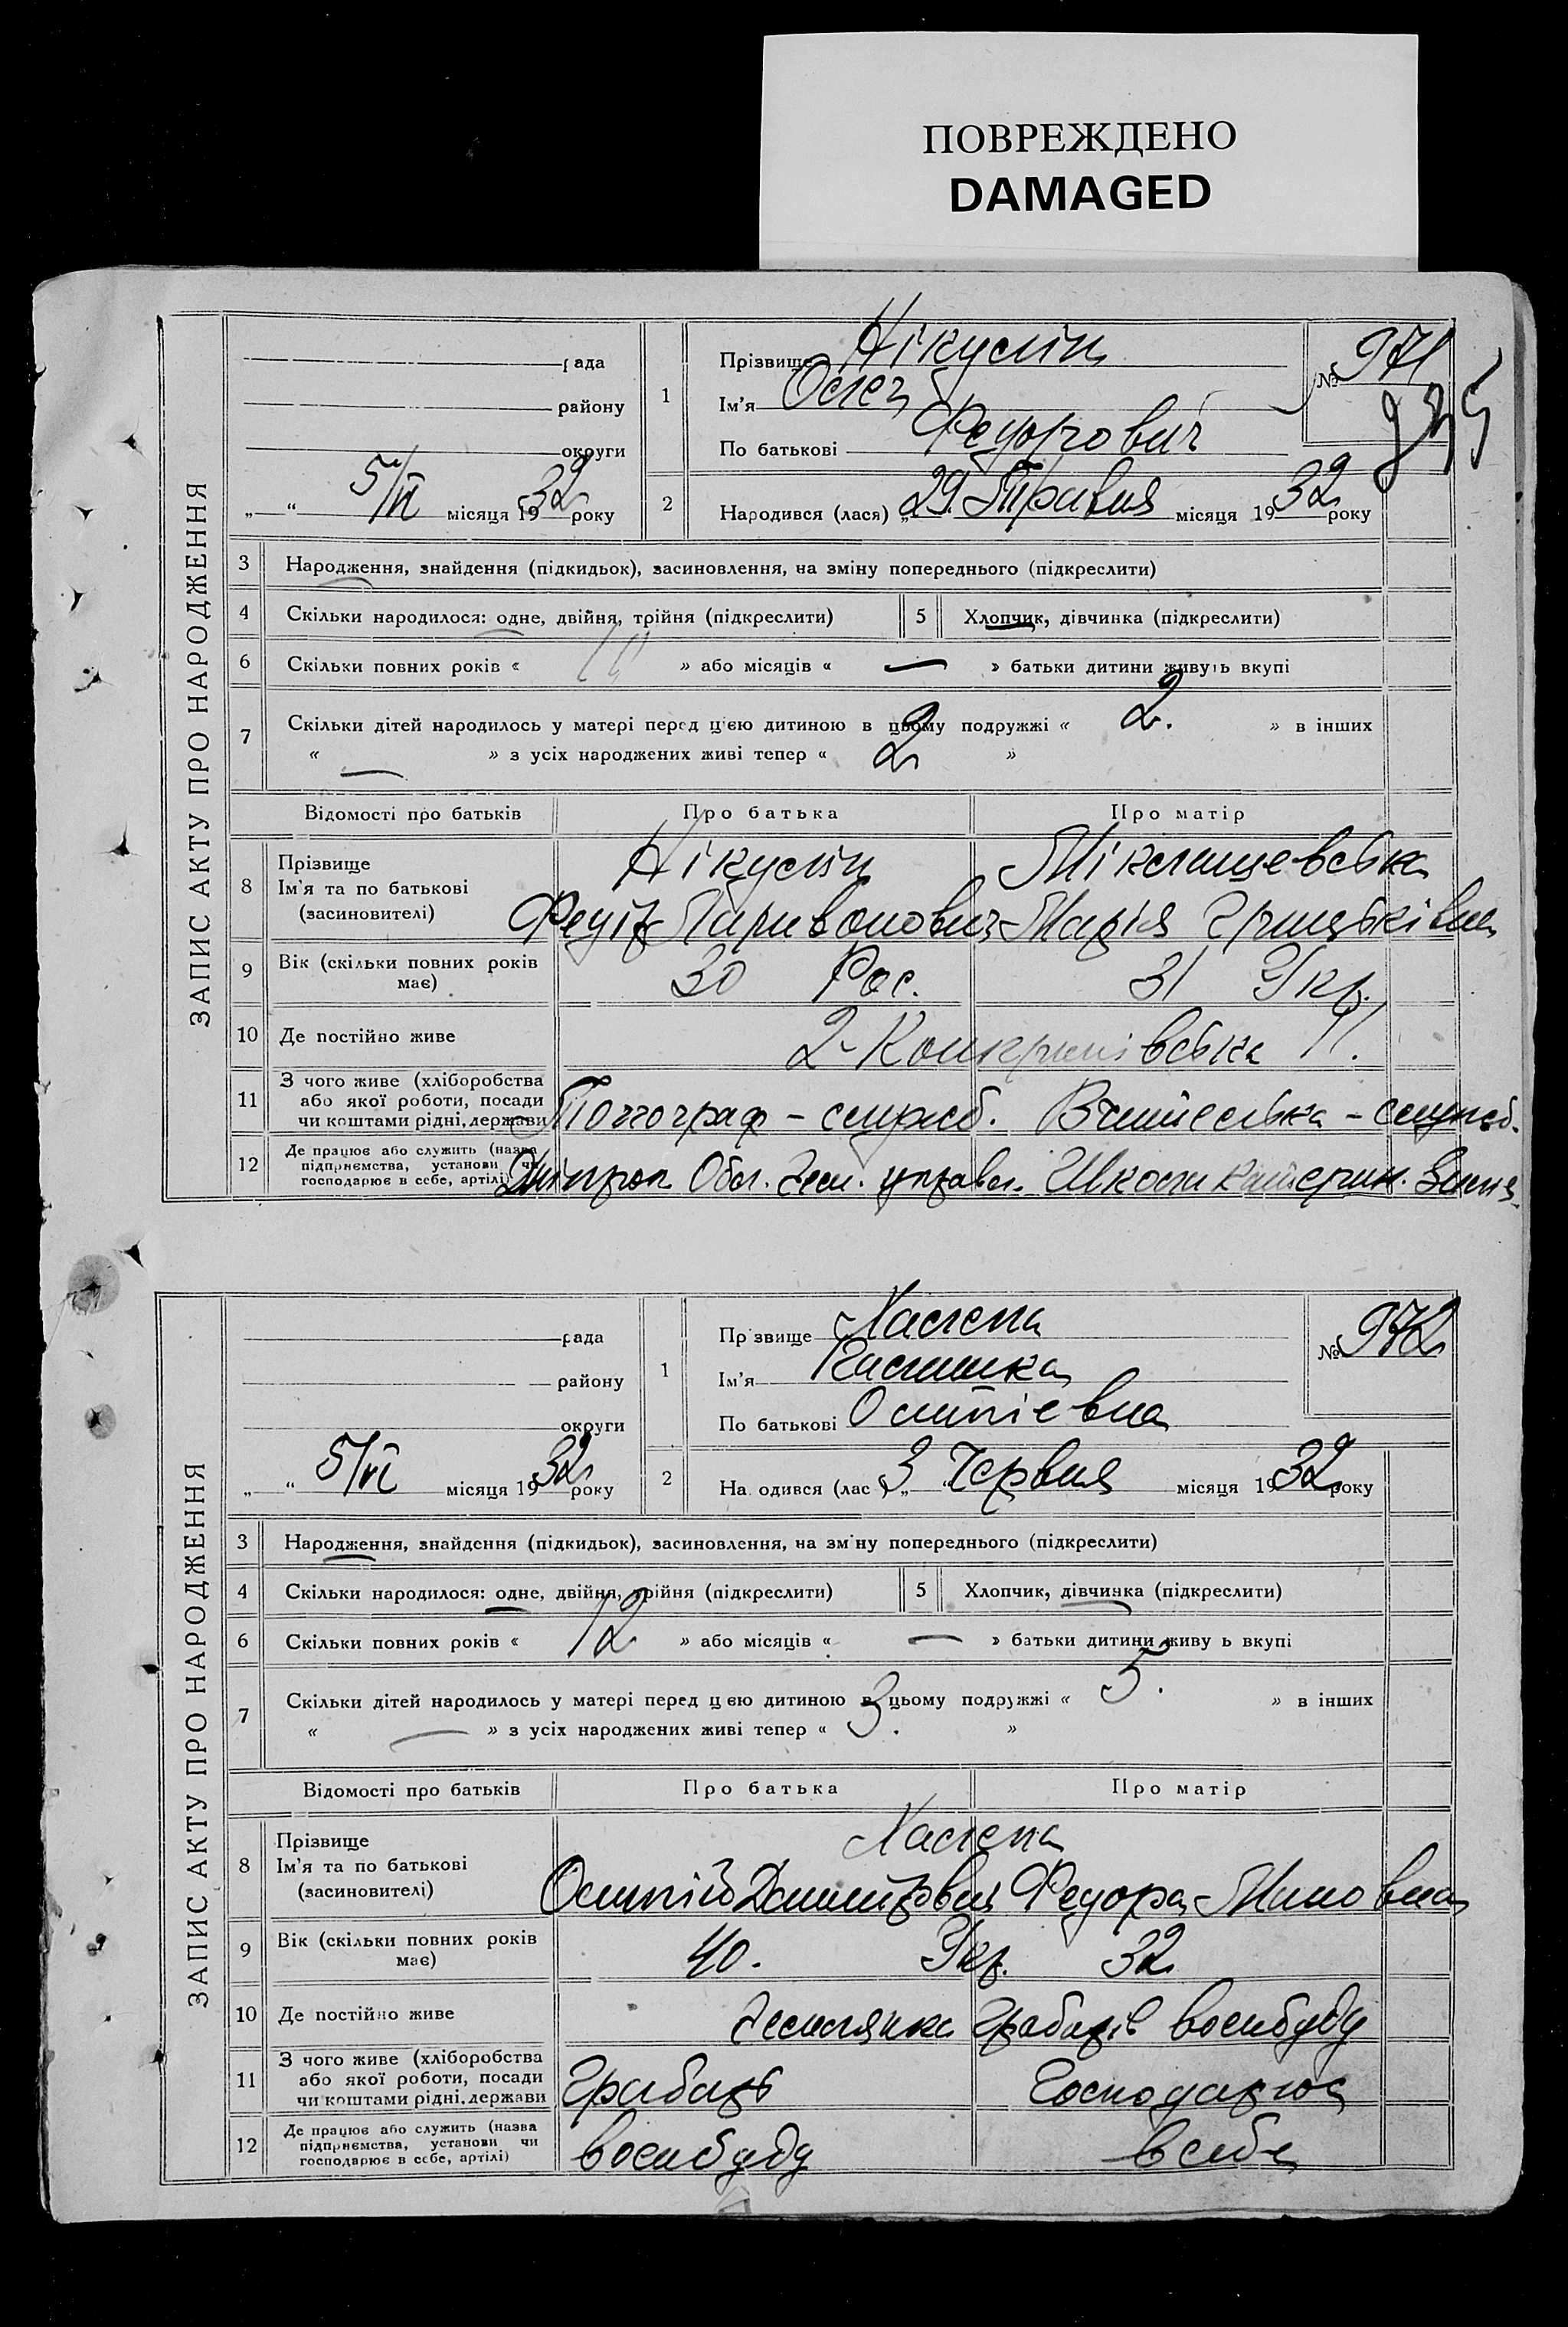 ПОВРЕЖДЕНО
DAMAGED
ЗАПИС АКТУ ПРО НАРОДЖЕННЯ
рада
району
округи
„ “ 5/VI місяця 1932 року
1
Прізвище Нікулін
Ім'я Олег
По батькові Федорович
№ 971
2
Народився (лася) „29 Травня місяця 1932 року
3 Народження, знайдення (підкидьок), засиновлення, на зміну попереднього (підкреслити)
4 Скільки народилося: одне, двійня, трійня (підкреслити) 5 Хлопчик, дівчинка (підкреслити)
6 Скільки повних років « » або місяців « — » батьки дитини живуть вкупі
7 Скільки дітей народилось у матері перед цією дитиною в цьому подружжі « 2. » в інших
« — » з усіх народжених живі тепер « 2 »
Відомості про батьків Про батька Про матір
8 Прізвище
Ім'я та по батькові
(засновителі)
Нікулін
Федір
Марія
9 Вік (скільки повних років
має)
30 Рос. 31 Укр.
10 Де постійно живе
11 З чого живе (хліборобства
або якої роботи, посади
чи коштами рідні, держави
Топограф – служб. Вчителька – служб.
12 Де працює або служить (назва
підприємства, установи чи
господарює в себе, артілі)
Дніпроп. Обл. Зем. управл. Школи
ЗАПИС АКТУ ПРО НАРОДЖЕННЯ
рада
району
округи
„ “ 5/VI місяця 1932 року
1
Пр звище Халепа
Ім'я
По батькові
№ 972
2
На одився (лас „3 Червня місяця 1932 року
3 Народження, знайдення (підкидьок), засиновлення, на зм ну попереднього (підкреслити)
4 Скільки народилося: одне, двійня, трійня (підкреслити) 5 Хлопчик, дівчинка (підкреслити)
6 Скільки повних років « 12 » або місяців « — » батьки дитини живу ь вкупі
7 Скільки дітей народилось у матері перед цією дитиною в цьому подружжі « 5. » в інших
« — » з усіх народжених живі тепер « 3. »
Відомості про батьків Про батька Про матір
8 Прізвище
Ім'я та по батькові
(засиновителі)
Халепа
Федора
9 Вік (скільки повних років
має)
40. Укр. 32
10 Де постійно живе
Землянка Грабарів воєнбуду
11 З чого живе (хліборобства
або якої роботи, посади
чи коштами рідні, держави
Грабарь Господарює
12 Де працює або служить (назва
підприємства, установи чи
господарює в себе, артілі)
воєнбуду в себе